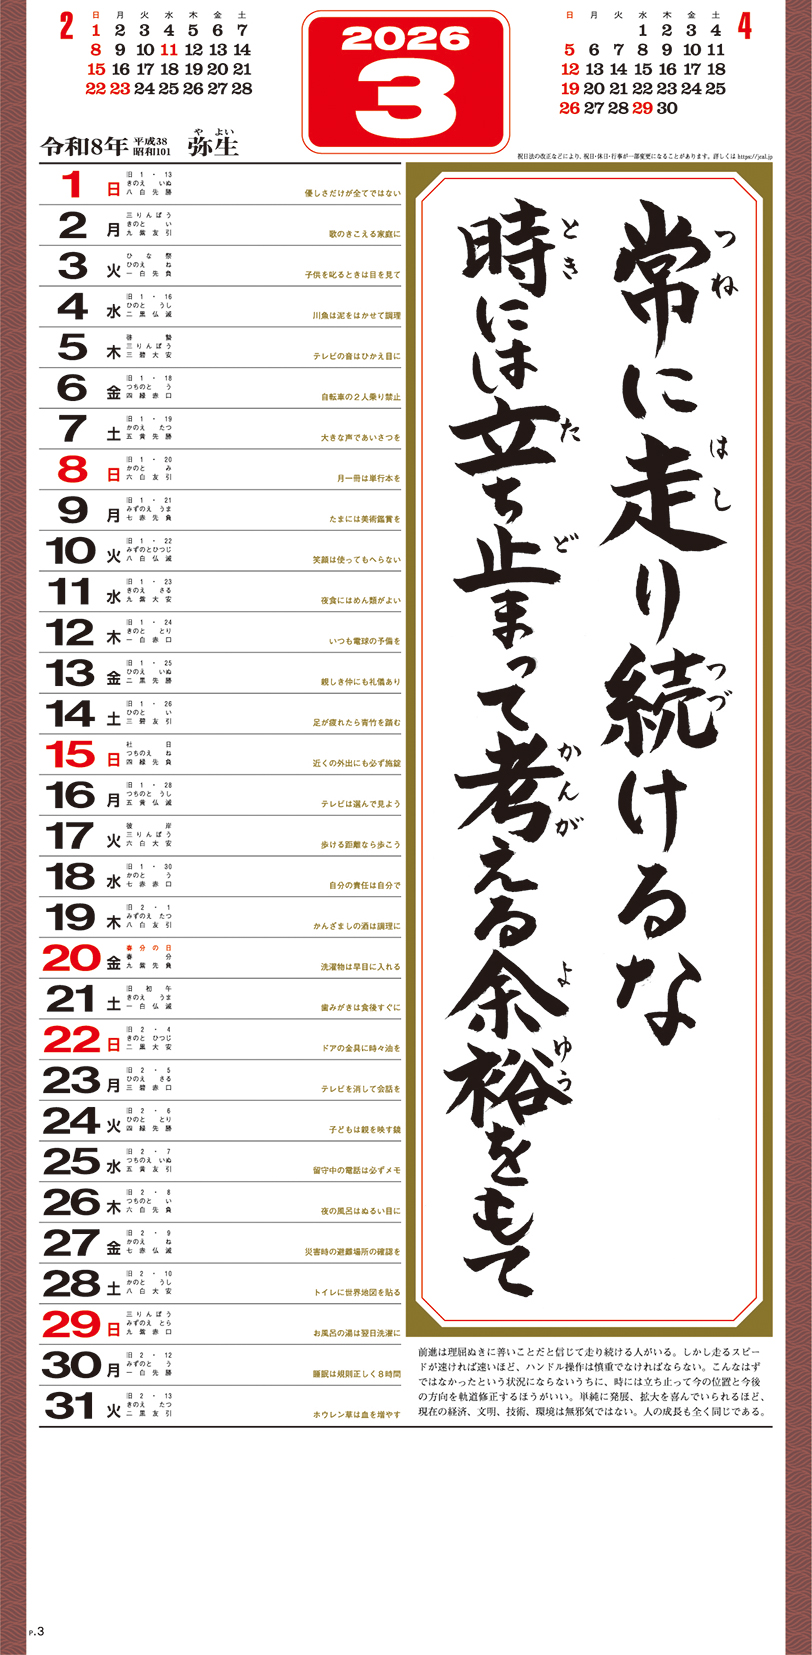 2
日 月 火 水 木 金 土
1 2 3 4 5 6 7
8 9 10 11 12 13 14
15 16 17 18 19 20 21
22 23 24 25 26 27 28
2026
3
4
日 月 火 水 木 金 土
1 2 3 4
5 6 7 8 9 10 11
12 13 14 15 16 17 18
19 20 21 22 23 24 25
26 27 28 29 30
令和8年 平成38 昭和101 弥生 や よい
祝日法の改正などにより、祝日・休日・行事が一部変更になることがあります。詳しくは https://jcal.jp
1 日 旧 1・13 きのえ いぬ 八白先勝 優しさだけが全てではない
2 月 三りんぼう きのと い 九紫友引 歌のきこえる家庭に
3 火 ひな祭 ひのえ ね 一白先負 子供を叱るときは目を見て
4 水 旧 1・16 ひのと うし 二黒仏滅 川魚は泥をはかせて調理
5 木 啓蟄 三りんぼう 三碧大安 テレビの音はひかえ目に
6 金 旧 1・18 つちのと う 四緑赤口 自転車の2人乗り禁止
7 土 旧 1・19 かのえ たつ 五黄先勝 大きな声であいさつを
8 日 旧 1・20 かのと み 六白友引 月一冊は単行本を
9 月 旧 1・21 みずのえ うま 七赤先負 たまには美術鑑賞を
10 火 旧 1・22 みずのとひつじ 八白仏滅 笑顔は使ってもへらない
11 水 旧 1・23 きのえ さる 九紫大安 夜食にはめん類がよい
12 木 旧 1・24 きのと とり 一白赤口 いつも電球の予備を
13 金 旧 1・25 ひのえ いぬ 二黒先勝 親しき仲にも礼儀あり
14 土 旧 1・26 ひのと い 三碧友引 足が疲れたら青竹を踏む
15 日 社日 つちのえ ね 四緑先負 近くの外出にも必ず施錠
16 月 旧 1・28 つちのと うし 五黄仏滅 テレビは選んで見よう
17 火 彼岸 三りんぼう 六白大安 歩ける距離なら歩こう
18 水 旧 1・30 かのと う 七赤赤口 自分の責任は自分で
19 木 旧 2・1 みずのえ たつ 八白友引 かんざましの酒は調理に
20 金 春分の日 春分 九紫先負 洗濯物は早目に入れる
21 土 旧初午 きのえ うま 一白仏滅 歯みがきは食後すぐに
22 日 旧 2・4 きのと ひつじ 二黒大安 ドアの金具に時々油を
23 月 旧 2・5 ひのえ さる 三碧赤口 テレビを消して会話を
24 火 旧 2・6 ひのと とり 四緑先勝 子どもは親を映す鏡
25 水 旧 2・7 つちのえ いぬ 五黄友引 留守中の電話は必ずメモ
26 木 旧 2・8 つちのと い 六白先負 夜の風呂はぬるい目に
27 金 旧 2・9 かのえ ね 七赤仏滅 災害時の避難場所の確認を
28 土 旧 2・10 かのと うし 八白大安 トイレに世界地図を貼る
29 日 三りんぼう みずのえ とら 九紫赤口 お風呂の湯は翌日洗濯に
30 月 旧 2・12 みずのと う 一白先勝 睡眠は規則正しく8時間
31 火 旧 2・13 きのえ たつ 二黒友引 ホウレン草は血を増やす
常に走り続けるな
つね はし つづ
時には立ち止まって考える余裕をもて
とき た ど かんが よゆう
前進は理屈ぬきに善いことだと信じて走り続ける人がいる。しかし走るスピー
ドが速ければ速いほど、ハンドル操作は慎重でなければならない。こんなはず
ではなかったという状況にならないうちに、時には立ち止って今の位置と今後
の方向を軌道修正するほうがいい。単純に発展、拡大を喜んでいられるほど、
現在の経済、文明、技術、環境は無邪気ではない。人の成長も全く同じである。
P.3